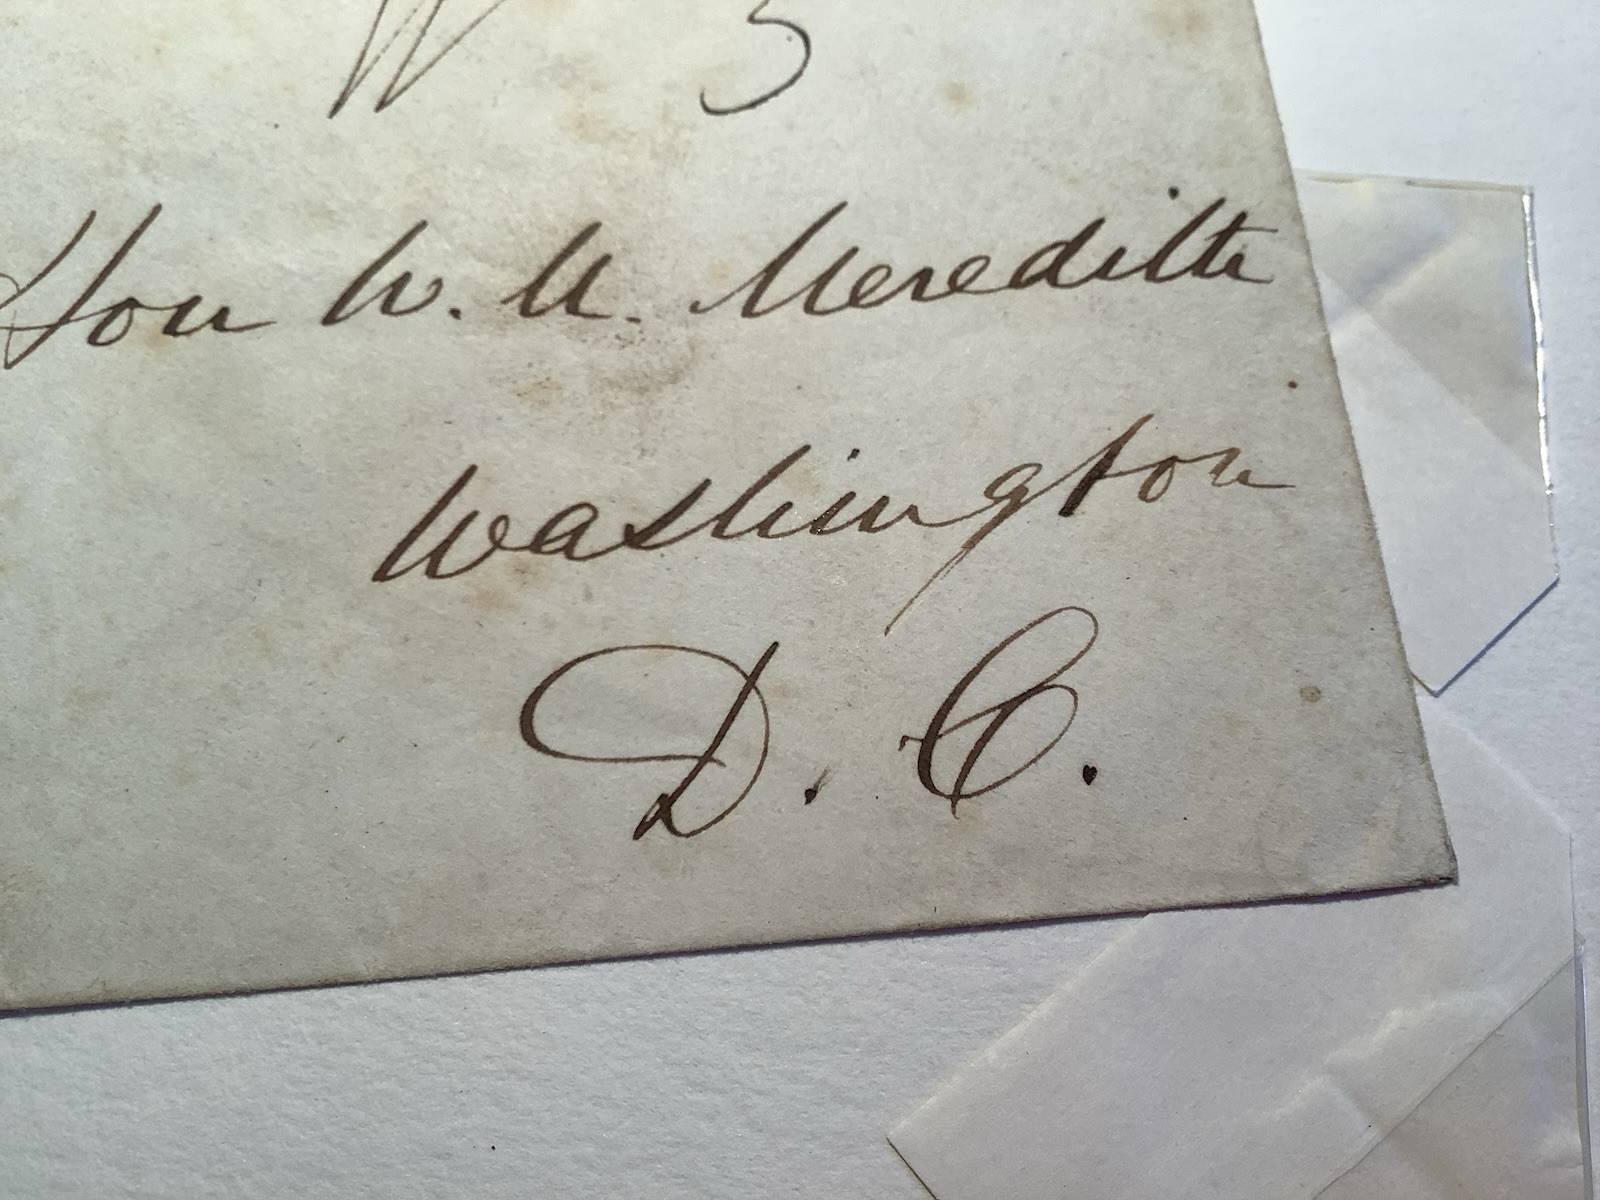 W 3
Hon W. M. Meredith
Washington
D. C.